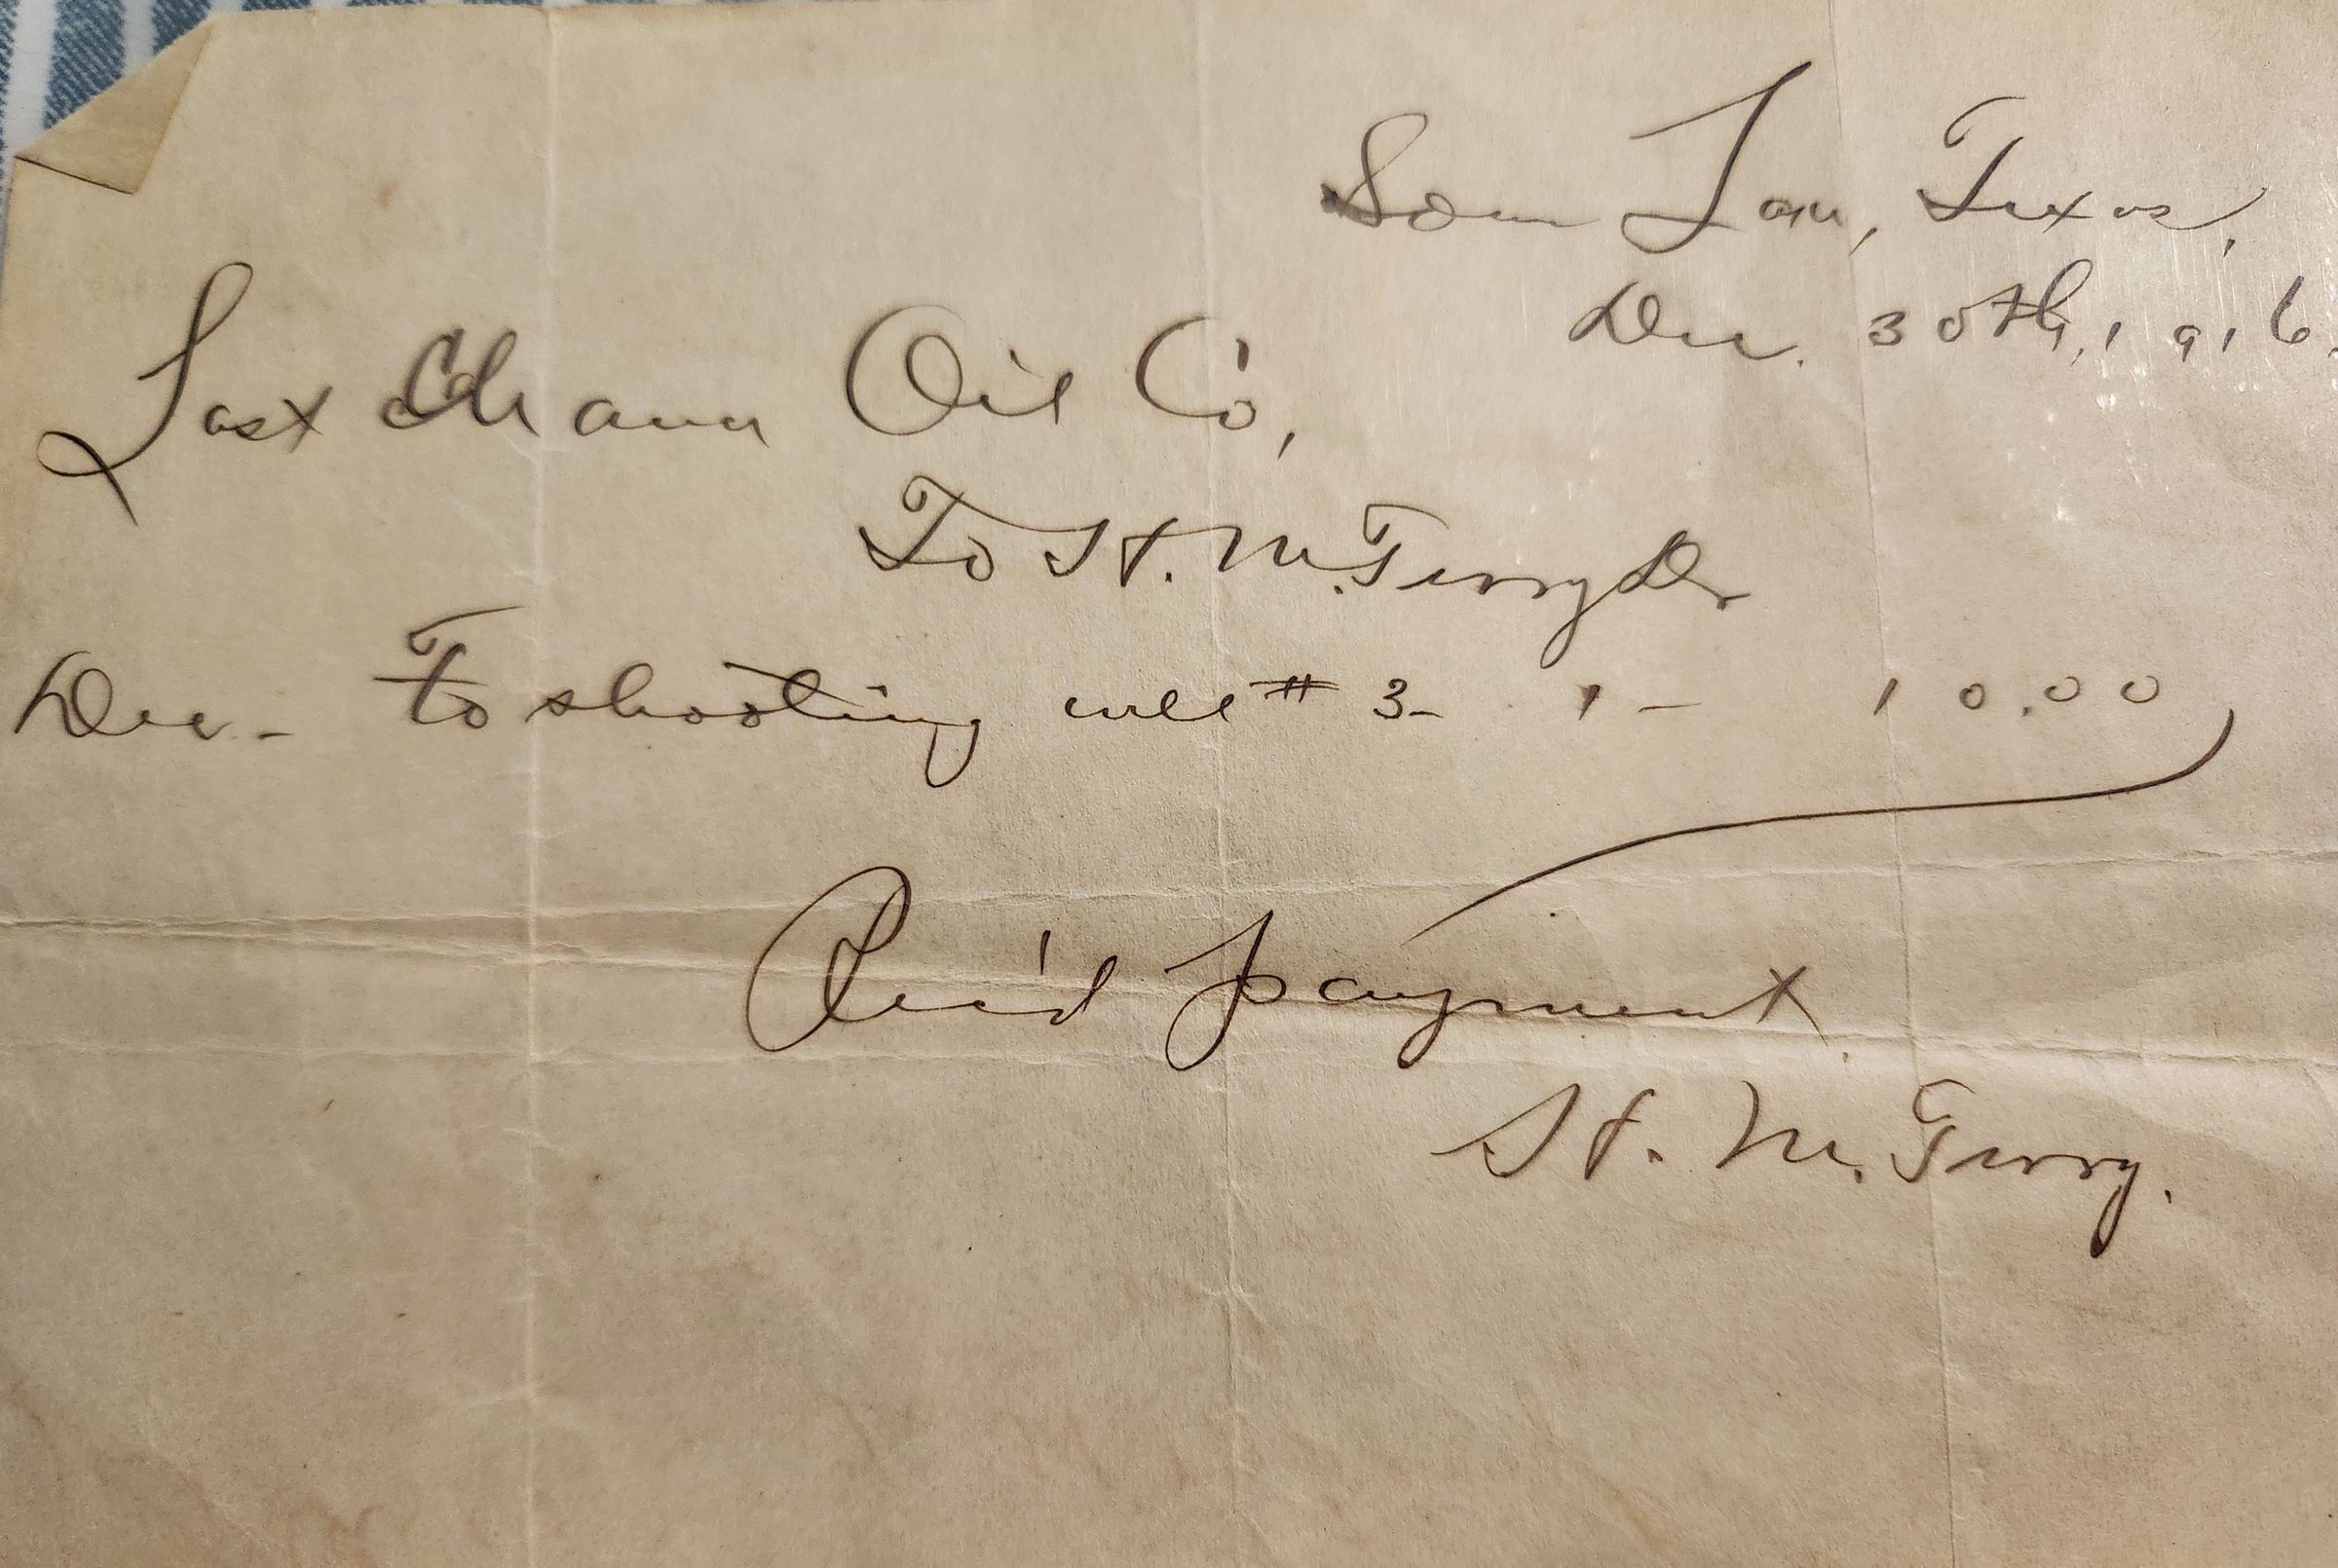 Sour Lake, Texas,
Dec. 30th, 1916.
Last Chance Oil Co,
To H. M. Terry Dr
Dec - To shooting well # 3 - 1 - 10.00
Rec'd payment
H. M. Terry.